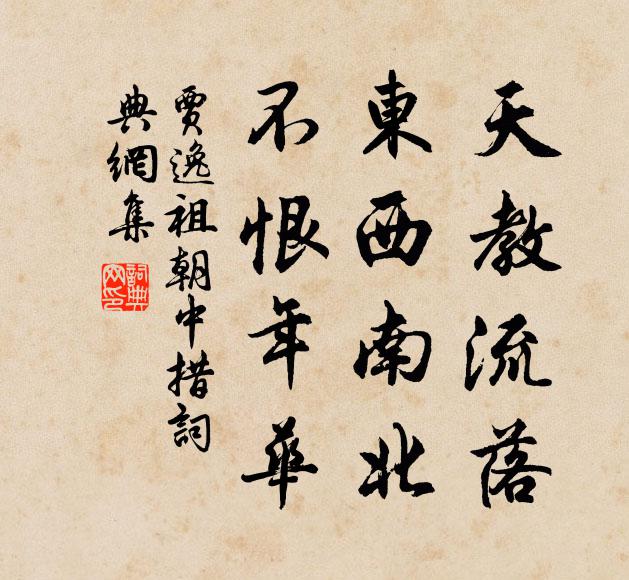 天教流落
東西南北
不恨年華
賈逸祖朝中措詞
典網集
詞典網印